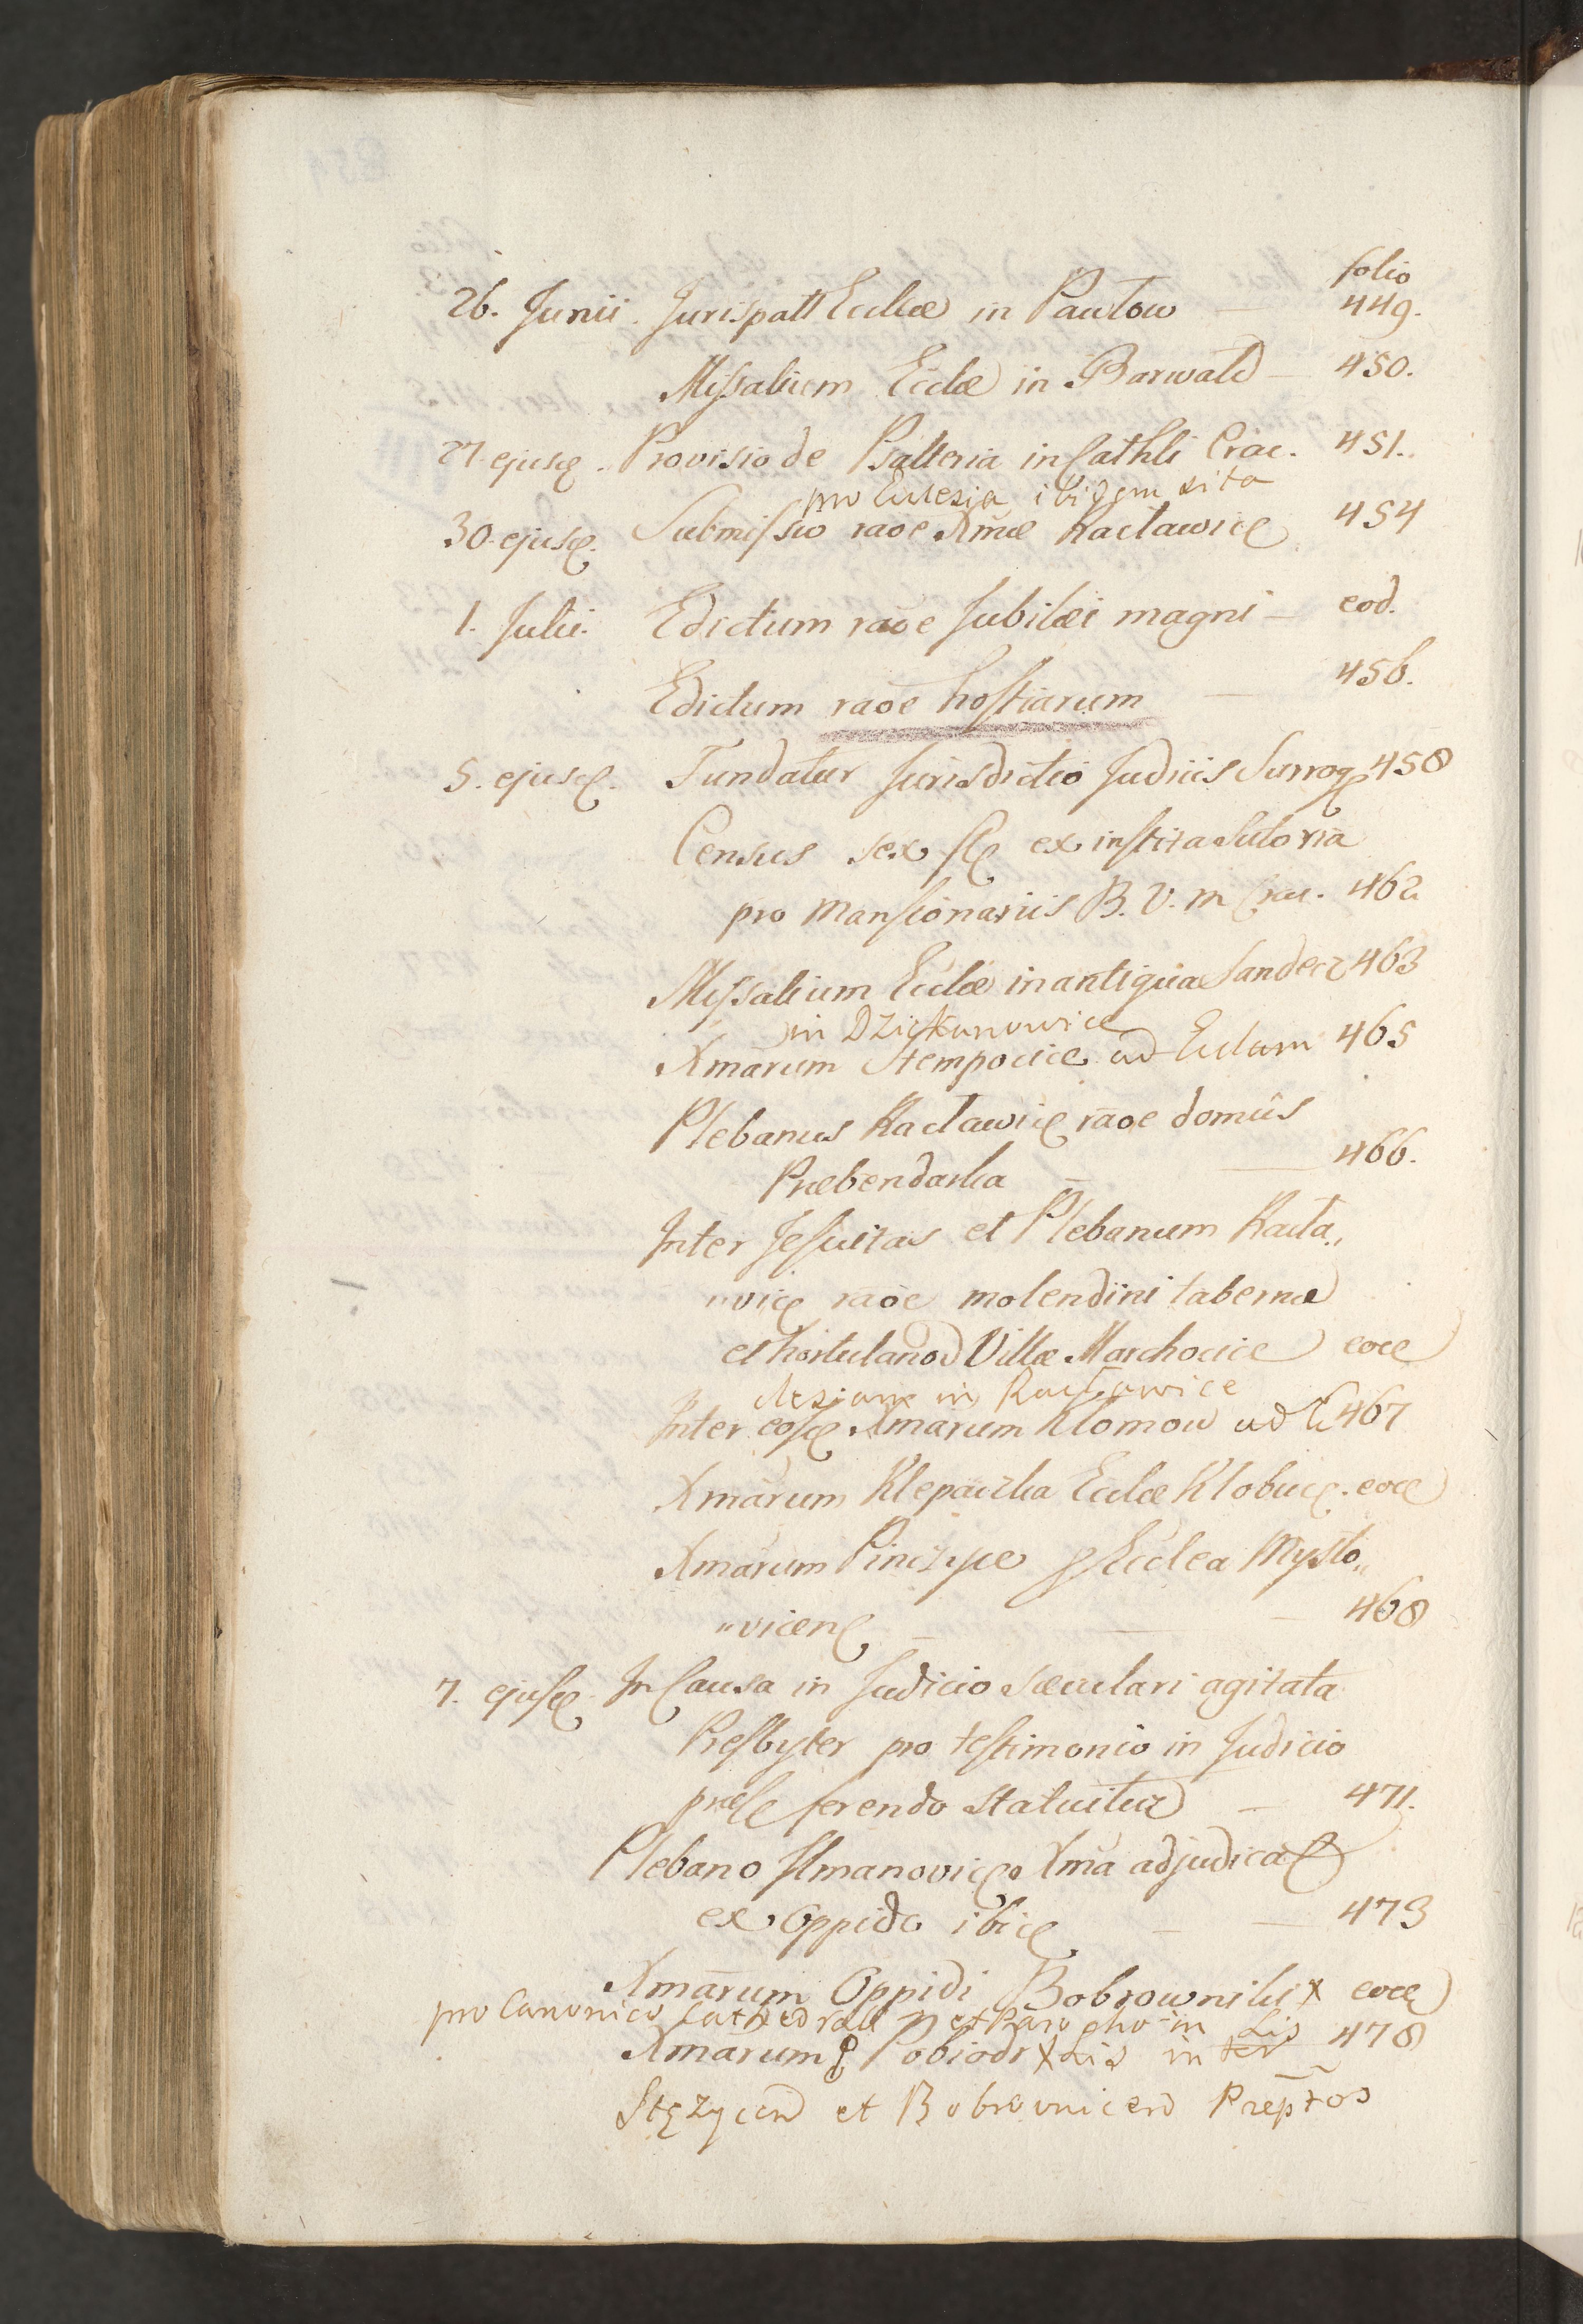 folio
26. Junii. Jurispatt Ecclæ in Pawłow — 449.
Missalium Ecclæ in Barwald — 450.
27. ejusd. Provisio de Psalteria in Cathli Crac. 451.
pro Ecclesia ibidem sita
30. ejusd. Submissio raõe Xmæ Racławic 454
1. Julii. Edictum raõe Jubilæi magni — eod.
Edictum raõe hostiarum — 456.
5. ejusd. Fundatur Jurisdictio Judiciis Surrog 458
Census sex ex institа Sutoria
pro Mansionariis B. V. M. Crac. 462
Missalium Ecclæ in antiqua Sandecz 463
in Dziekanowice
Xmarum Stempocice ad Eclam 465
Plebanus Racławic raõe domûs
Præbendarha — 466.
Inter Jesuitas et Plebanum Racła„
„vic raõe molendini tabernæ
et hortulanoꝝ Villæ Marchocice eod
clesiam in Racławice
Inter eosd Xmarum Klomow ad Ec 467
Xmarum Klepaczka Ecclæ Klobuc. eod
Xmarum Pinczyce Ecclea Mysło„
„vicen — 468
7. ejusd. In Causa in Judicio sæculari agitata
Presbyter pro testimonio in Judicio
præs ferendo statuitur — 471.
Plebano Ilmanovic Xma adjudicat
ex Oppido ibid — 473
Xmarum Oppidi Bobrowniki x eod
pro Canonico Cathedrali et Parocho in Lis
Xmarum Pobiodr x Lis inter 478
Stęzycen et Bobrovnicen Præptos